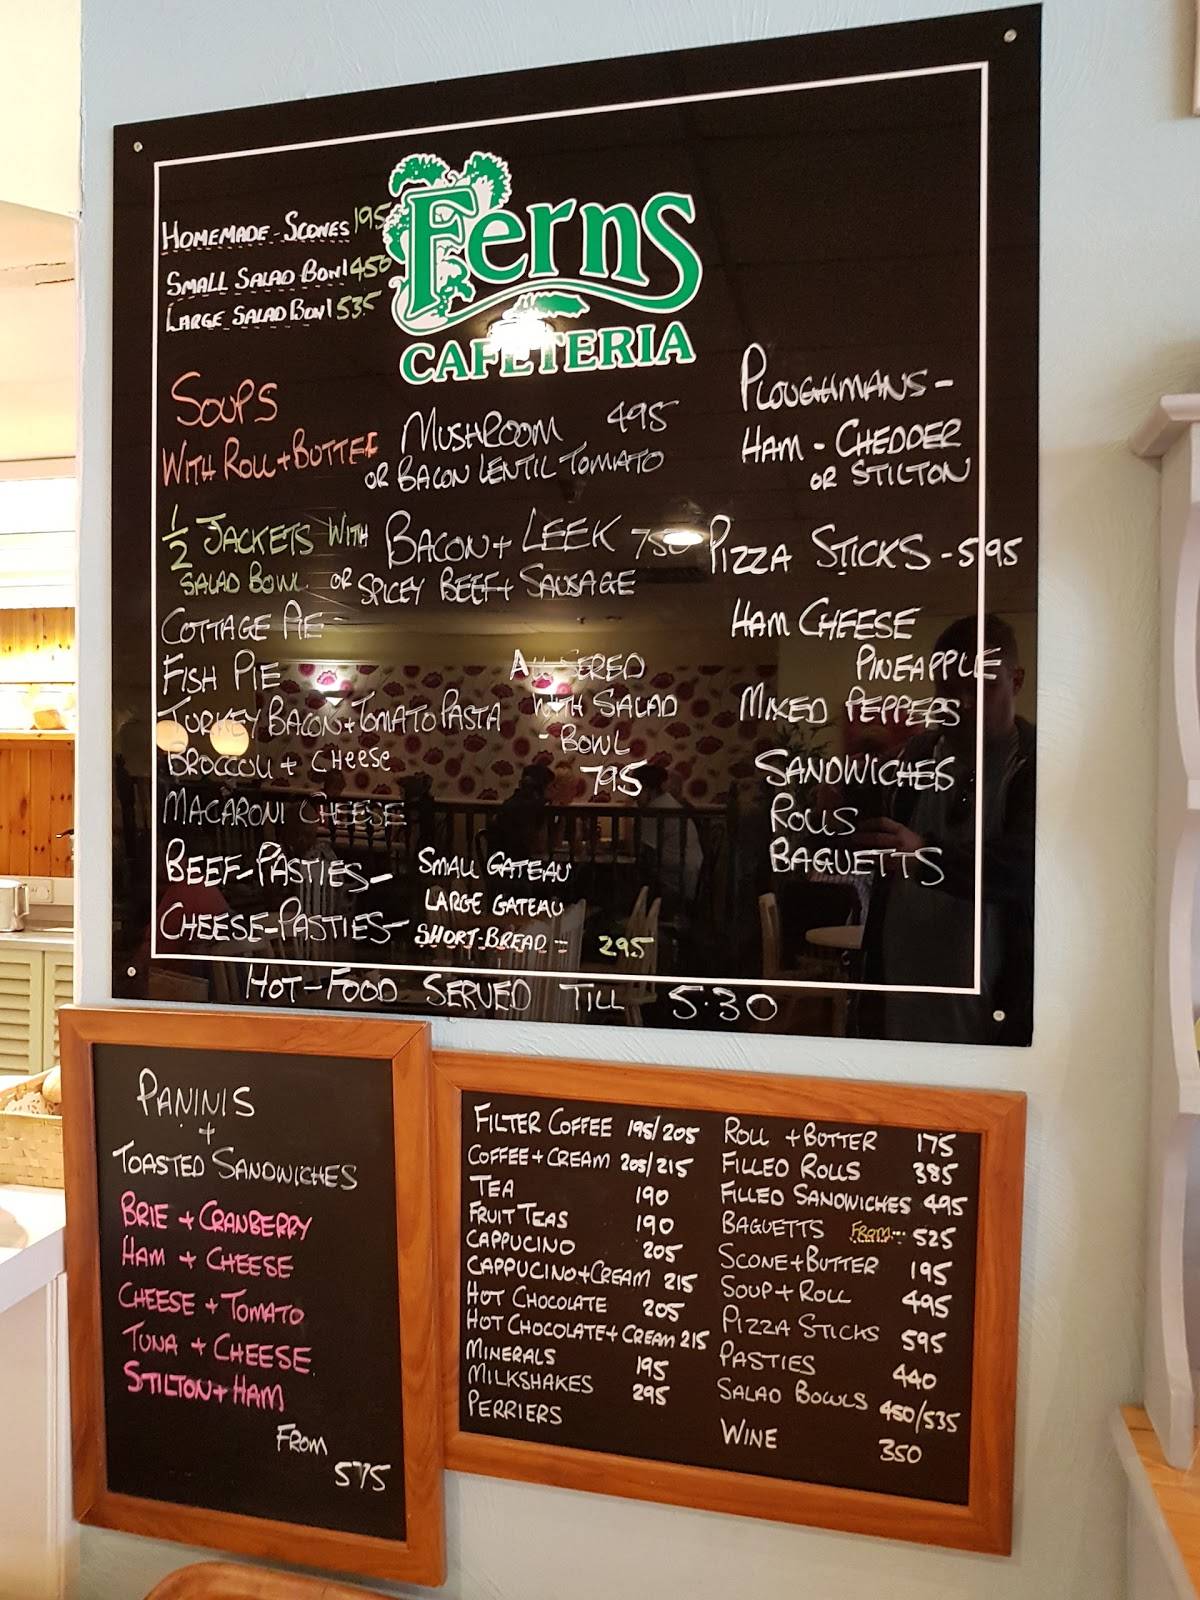 Ferns
CAFETERIA
HOMEMADE-SCONES 195
SMALL SALAD BOWL 450
LARGE SALAD BOWL 535
SOUPS
WITH ROLL + BUTTER
MUSHROOM 495
OR BACON LENTIL TOMATO
1/2 JACKETS WITH
SALAD BOWL
BACON + LEEK 750
OR SPICEY BEEF + SAUSAGE
COTTAGE PIE
FISH PIE
TURKEY BACON + TOMATO PASTA
BROCCOLI + CHEESE
MACARONI CHEESE
ALL SERED
WITH SALAD
- BOWL
795
BEEF-PASTIES-
CHEESE-PASTIES
SMALL GATEAU
LARGE GATEAU
SHORT-BREAD - 295
PLOUGHMANS -
HAM - CHEDDER
OR STILTON
PIZZA STICKS - 595
HAM CHEESE
PINEAPPLE
MIXED PEPPERS
SANDWICHES
ROLLS
BAGUETTS
HOT-FOOD SERVED TILL 5.30
PANINIS
+
TOASTED SANDWICHES
BRIE + CRANBERRY
HAM + CHEESE
CHEESE + TOMATO
TUNA + CHEESE
STILTON + HAM
FROM
575
FILTER COFFEE 195/205
COFFEE + CREAM 205/215
TEA 190
FRUIT TEAS 190
CAPPUCINO 205
CAPPUCINO + CREAM 215
HOT CHOCOLATE 205
HOT CHOCOLATE + CREAM 215
MINERALS 195
MILKSHAKES 295
PERRIERS
ROLL + BUTTER 175
FILLED ROLLS 385
FILLED SANDWICHES 495
BAGUETTS FROM--- 525
SCONE + BUTTER 195
SOUP + ROLL 495
PIZZA STICKS 595
PASTIES 440
SALAD BOWLS 450/535
WINE 350